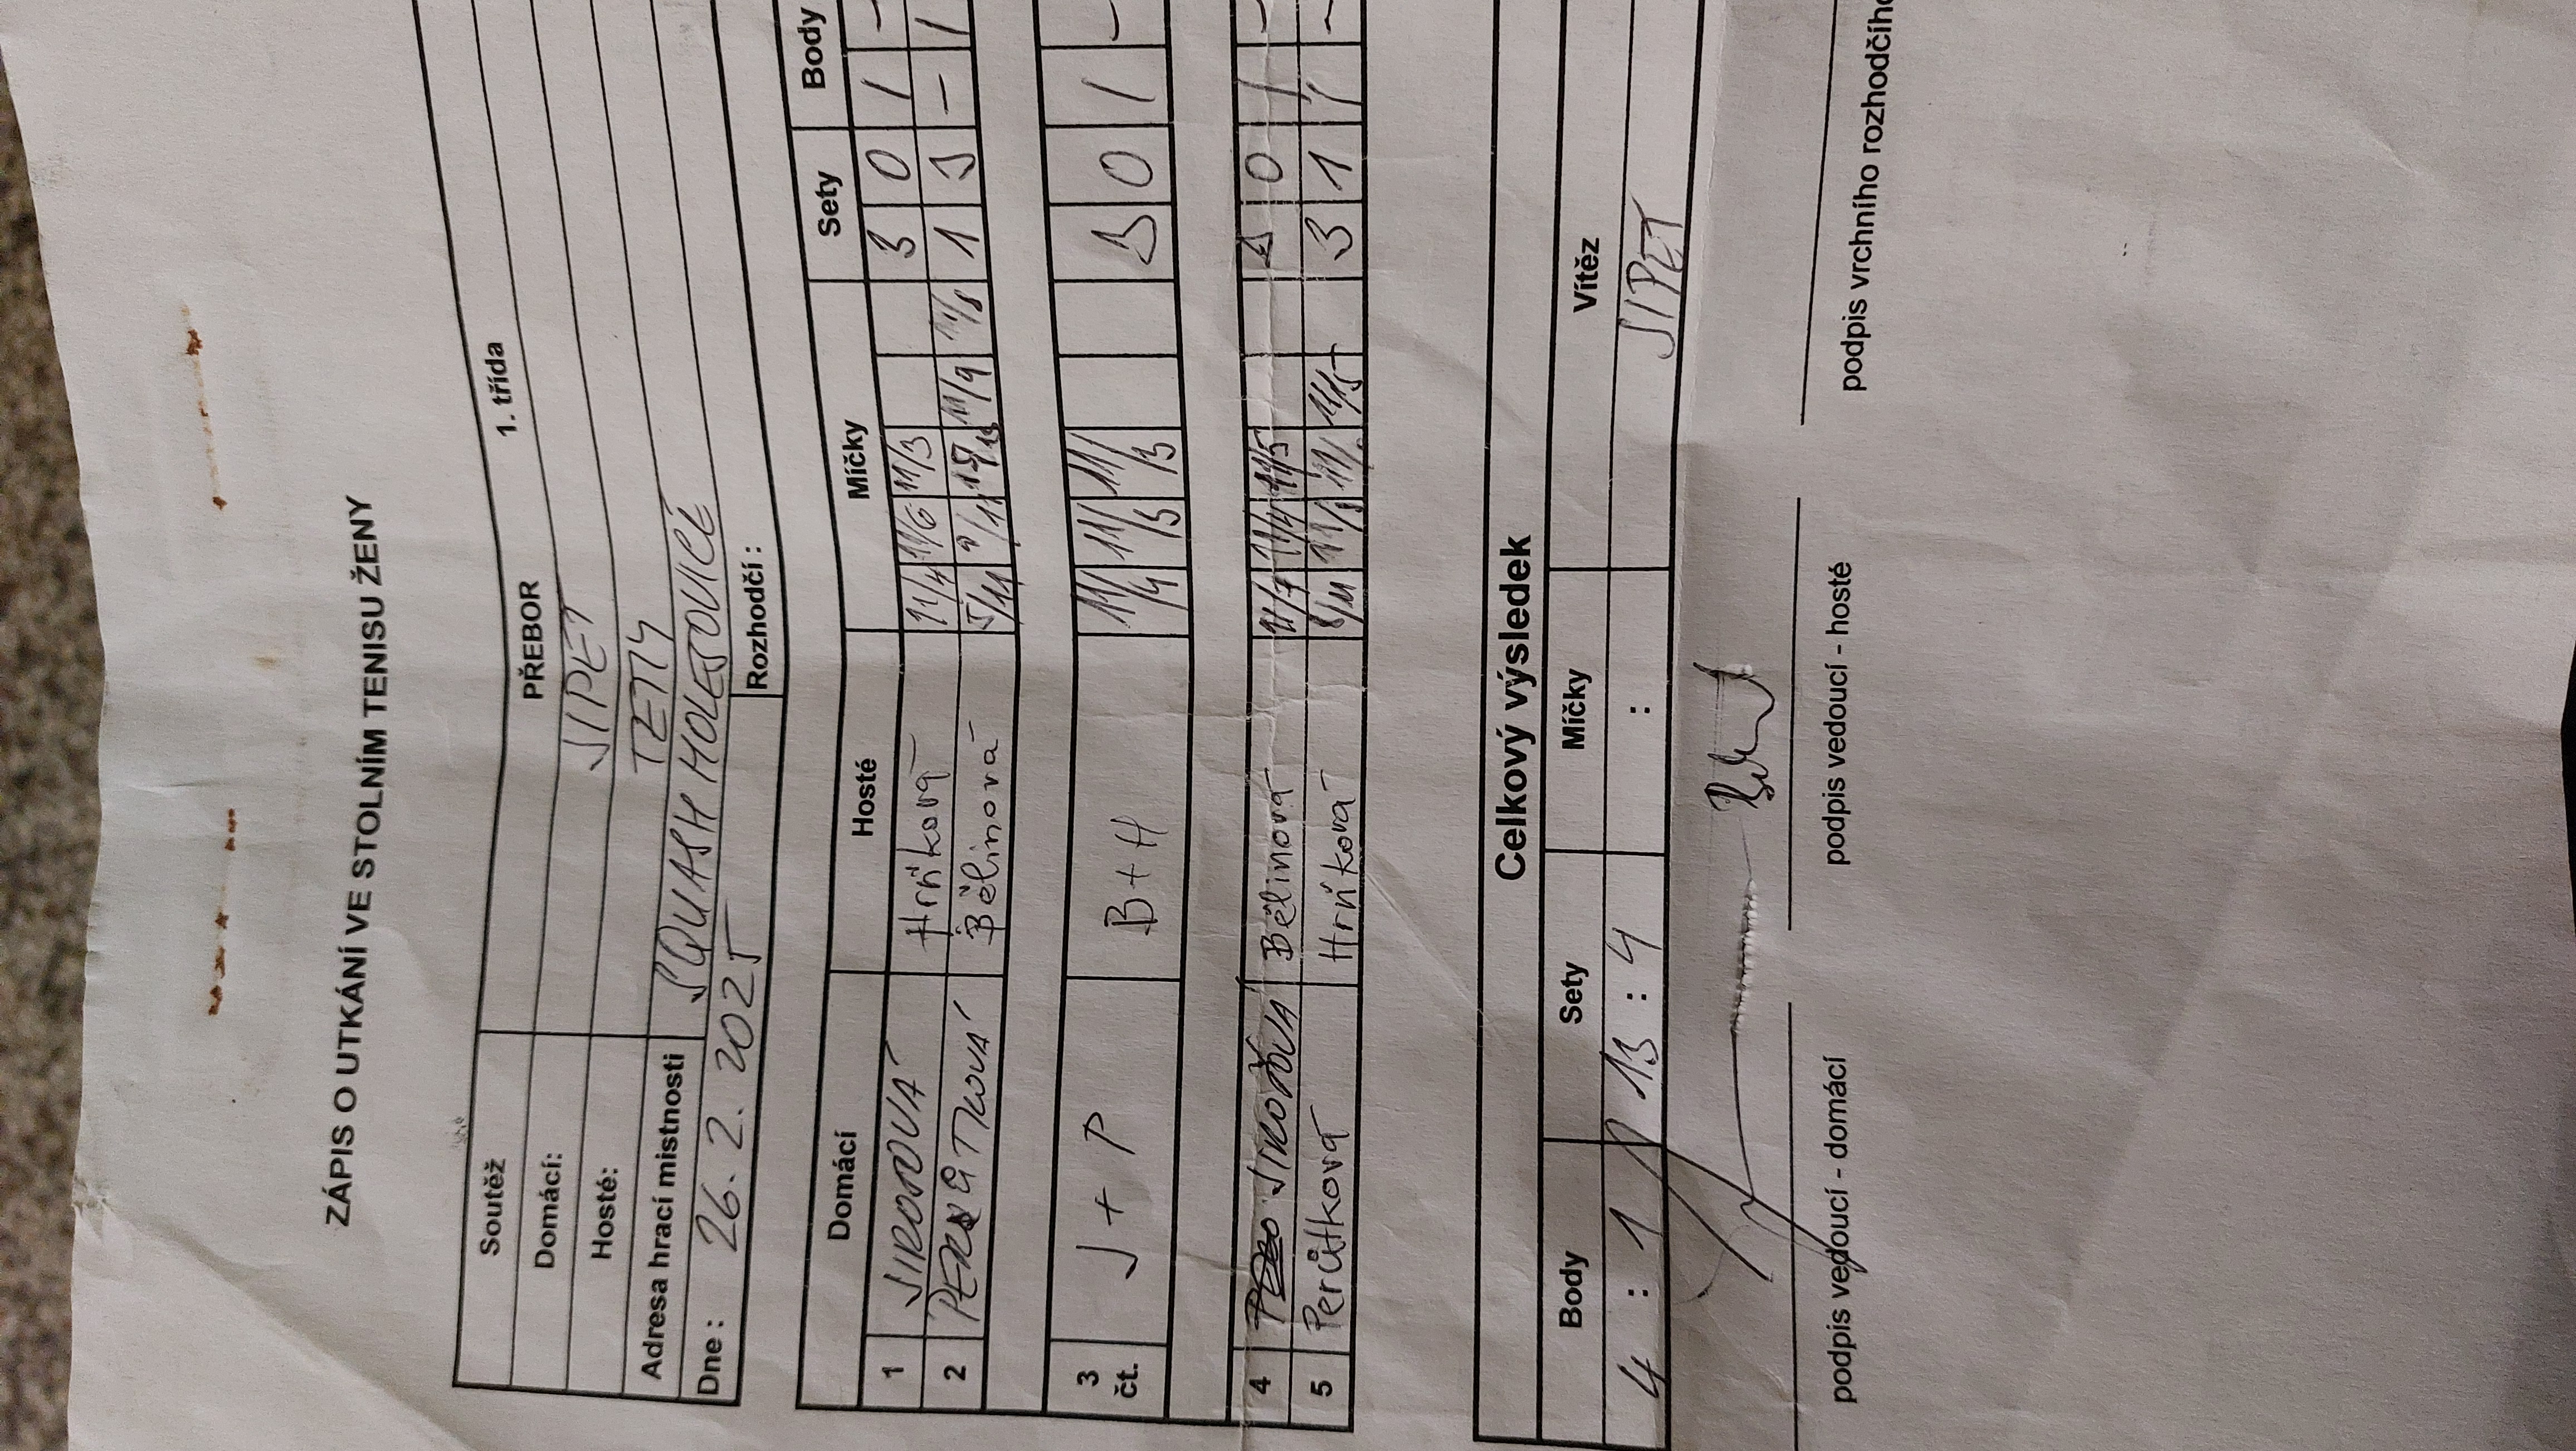 ZÁPIS O UTKÁNÍ VE STOLNÍM TENISU ŽENY
Soutěž PŘEBOR 1. třída
Domácí: SIPET
Hosté: TETY
Adresa hrací místnosti SQUASH HOLEŠOVICE
Dne : 26. 2. 2025 Rozhodčí :
Domácí Hosté Míčky Sety Body
1 JIROTOVÁ Hrníková 11/4 11/6 11/3 3 0 / -
2 Bělinová 5/11 11/9 11/8 1 3 - /
3 čt. J + P B + H 11/4 11/5 11/3 3 0 / -
4 Bělinová 11/7 11/4 11/5 3 0 / -
5 Perůtková Hrníková 11/5 3 1 / -
Celkový výsledek
Body Sety Míčky Vítěz
4 : 1 13 : 4 : SIPET
podpis vedoucí - domácí podpis vedoucí - hosté podpis vrchního rozhodčího